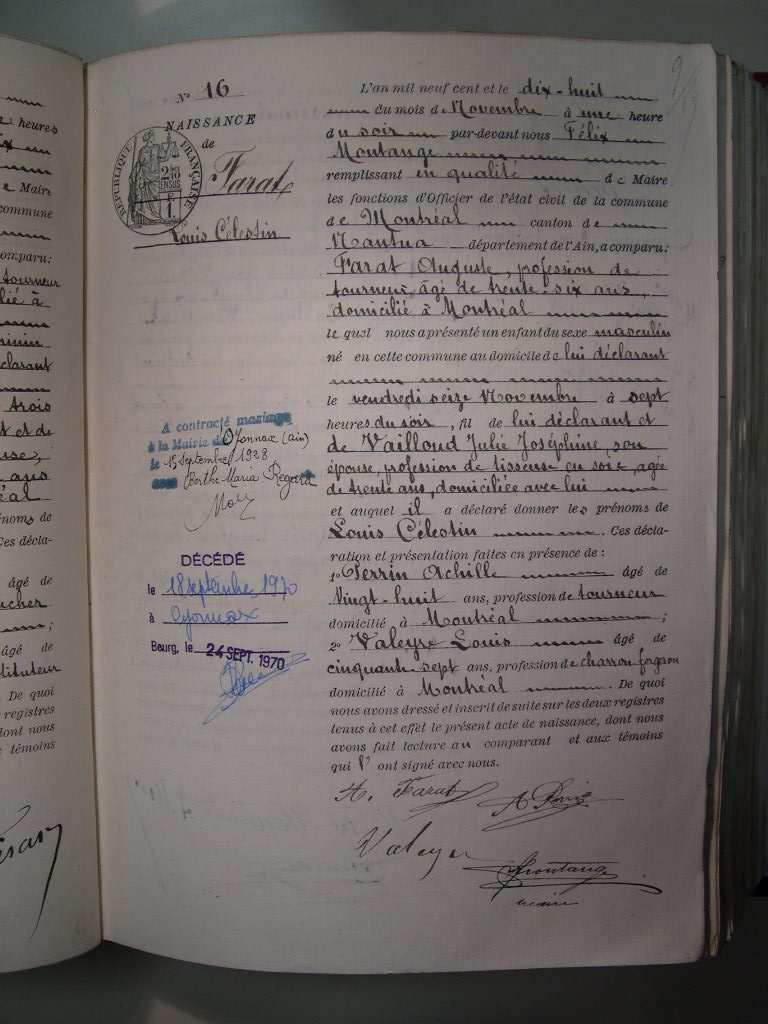 N° 16
NAISSANCE
de
Farat
Louis Célestin
RÉPUBLIQUE FRANÇAISE
A contracté mariage
à la Mairie d'Oyonnax (ain)
le 15 septembre 1928
avec Berthe Maria Regard
DÉCÉDÉ
le 18 septembre 1970
à Oyonnax
Bourg, le 24 SEPT. 1970
L'an mil neuf cent et le dix-huit
du mois de Novembre à une heure
du soir par-devant nous Félix
Montange
remplissant en qualité de Maire
les fonctions d'Officier de l'état civil de la commune
de Montréal canton de
Nantua département de l'Ain, a comparu:
Farat Auguste, profession de
tourneur, âgé de trente-six ans,
domicilié à Montréal
lequel nous a présenté un enfant du sexe masculin
né en cette commune au domicile de lui déclarant
le vendredi seize Novembre à sept
heures du soir, fil de lui déclarant et
de Vailloud Julie Joséphine, son
épouse, profession de tisseuse en soie, agée
de trente ans, domiciliée avec lui
et auquel il a déclaré donner les prénoms de
Louis Célestin. Ces décla-
ration et présentation faites en présence de :
1° Perrin Achille âgé de
Vingt-huit ans, profession de tourneur
domicilié à Montréal ;
2° Valeyre Louis âgé de
cinquante sept ans, profession de charron forgeron
domicilié à Montréal. De quoi
nous avons dressé et inscrit de suite sur les deux registres
tenus à cet effet le présent acte de naissance, dont nous
avons fait lecture au comparant et aux témoins
qui l' ont signé avec nous.
A. Farat
Valeyre
Montange
maire
heures
de Maire
commune
comparu:
tourneur
lié à
minin
clarant
trois
t et de
ans
éal
énoms de
Ces décla-
âgé de
ucher
;
âgé de
tituteur
De quoi
registres
dont nous
témoins